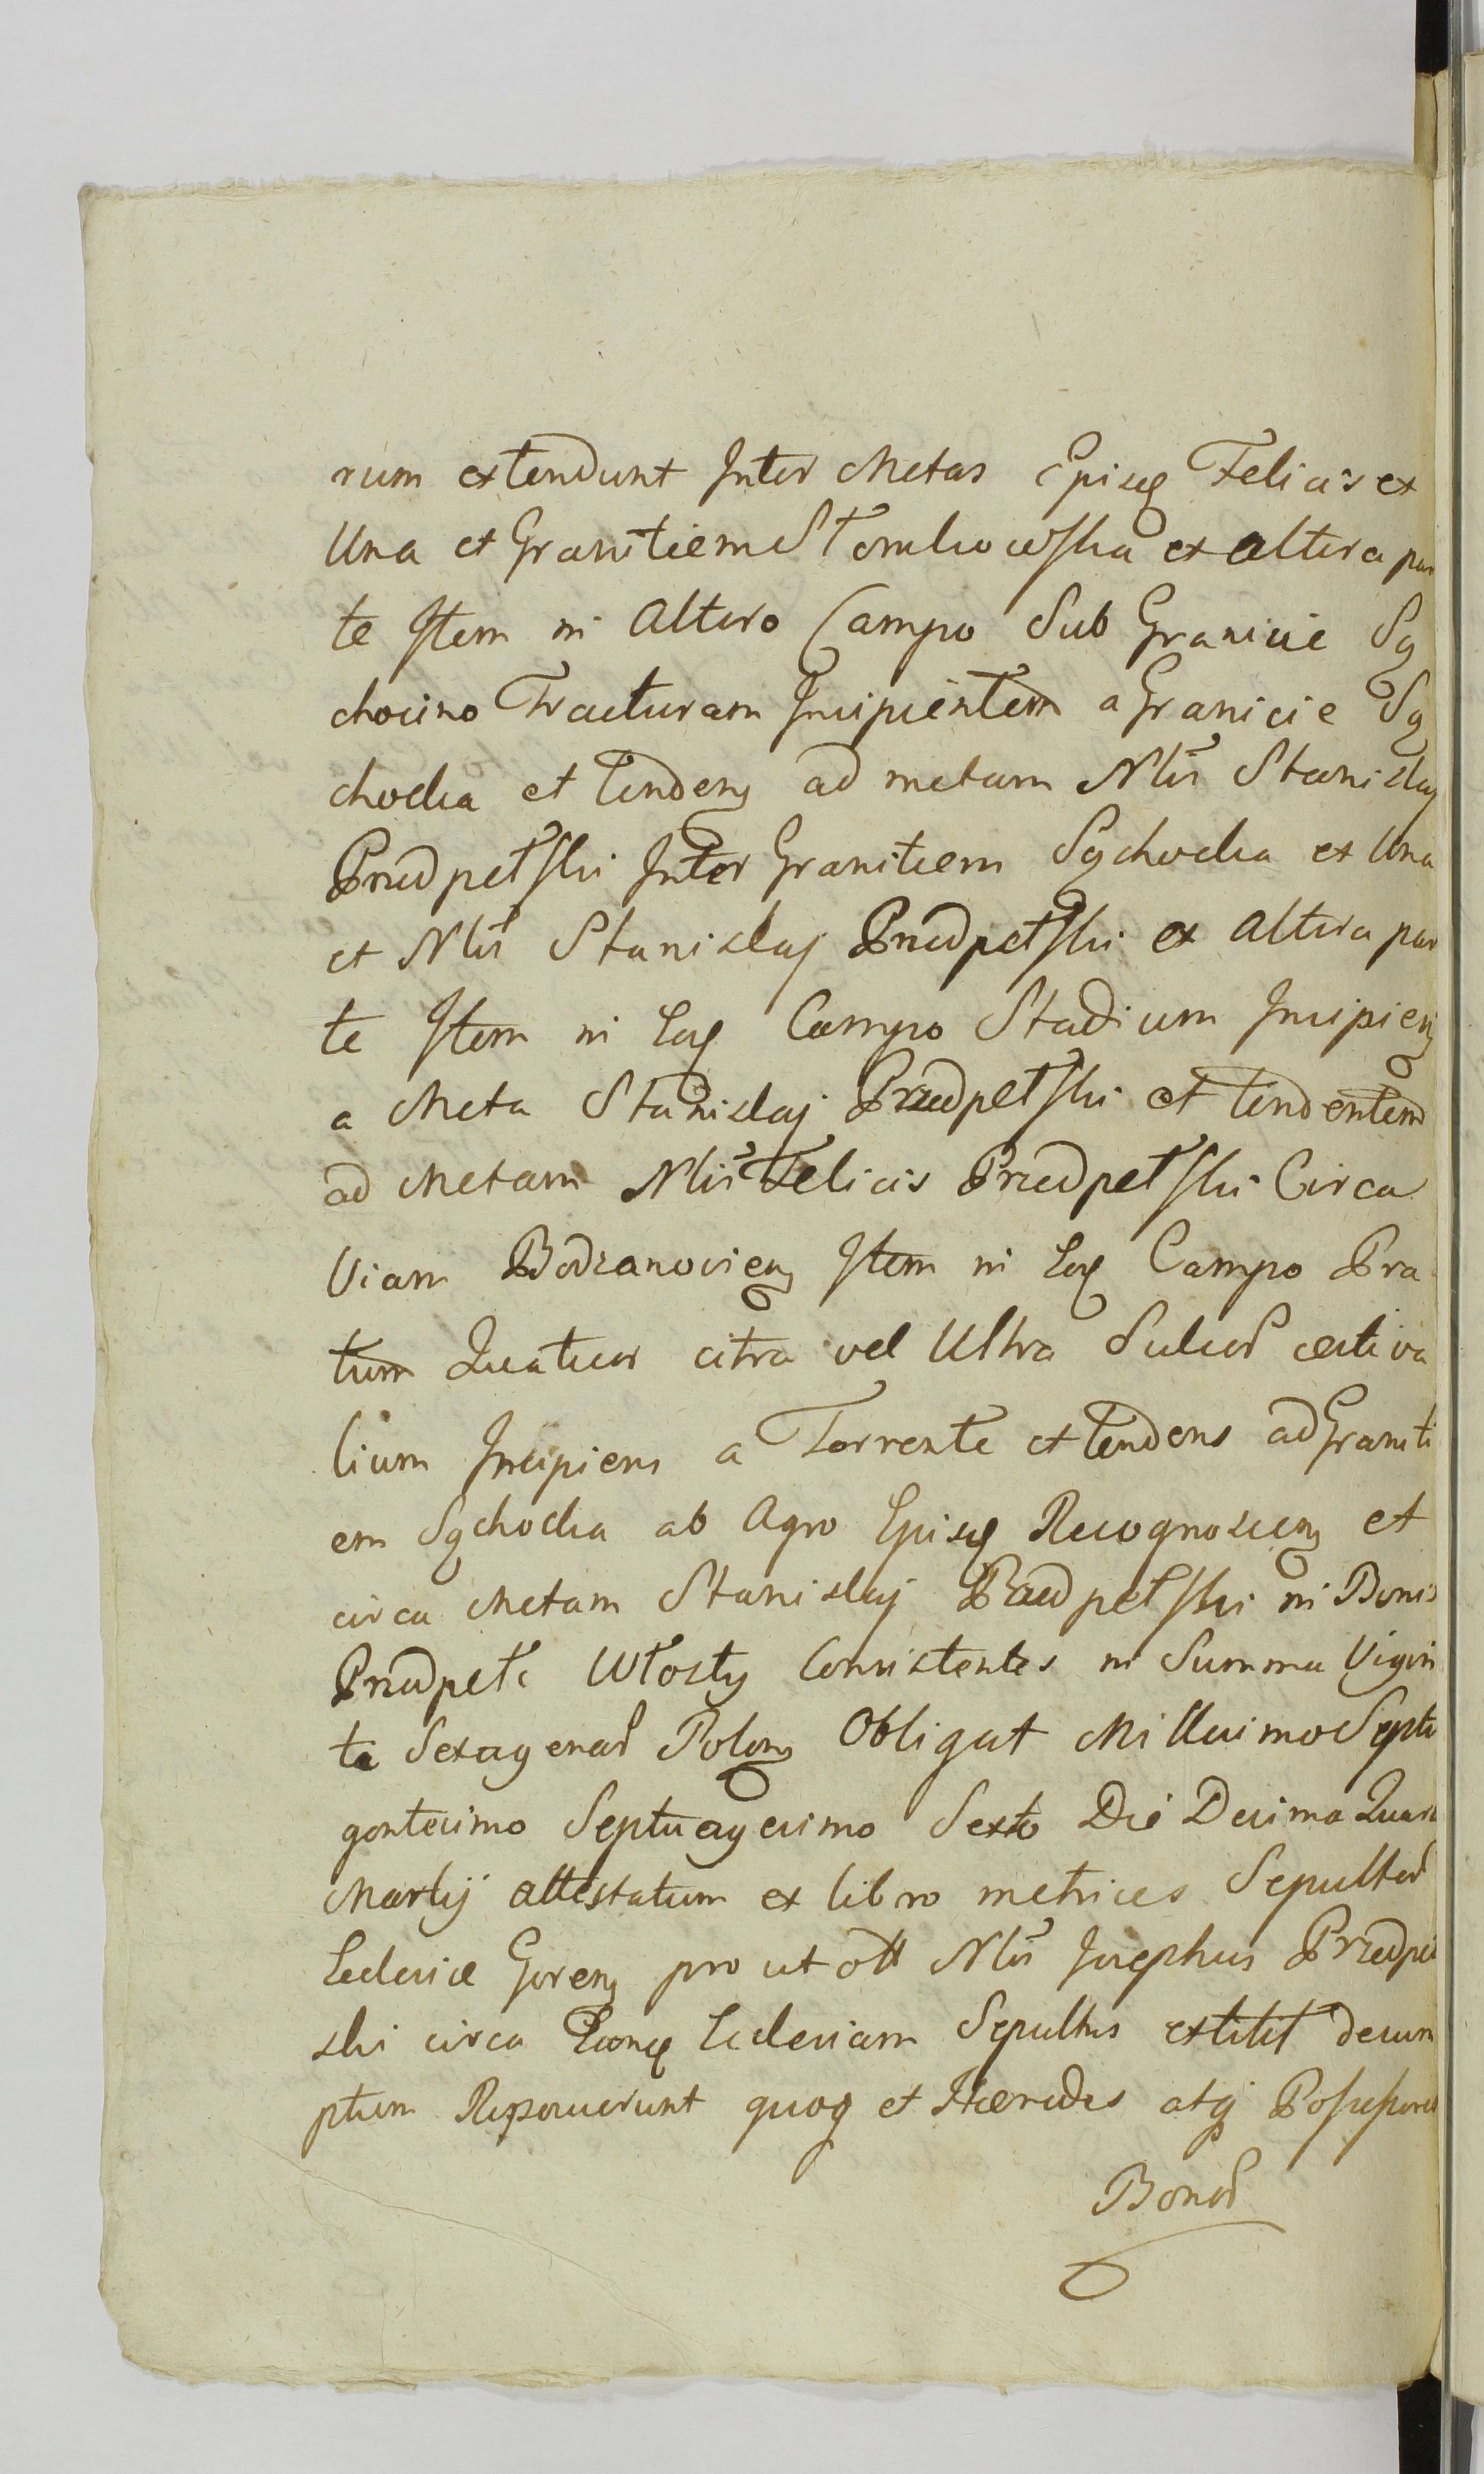 rum extendunt Inter Metas Episcꝭ Felicis ex
Una et Granitiem Stomkowska ex altera par
te Item in Altero Campo Sub Granicie Sy
chocino Fracturam Incipientem a Granicie Sy
chocka et Tendenꝭ ad metam Nlis Stanislaj
Przedpelski Inter Granitiem Sychocka ex Una
et Nlis Stanislaj Przedpelski ex Altera par
te Item in Eoꝗ Campo Stadium Incipienꝭ
a Meta Stanislaj Przedpelski et tendentem
ad Metam Nlis Felicis Przedpelski Circa
Viam Bodzanovienꝭ Item in Eoꝗ Campo Pra
tum Quatuor citra vel Ultra Sulcoꝝ aestiva
lium Incipiens a Torrente et tendens ad Graniti
em Sychocka ab Agro Episcꝭ Recognoscenꝭ et
circa Metam Stanislaj Przedpelski in Bonis
Przedpełe Włosty Consistentes in Summa Vigin
ta Sexagenaꝝ Polonꝭ Obligat Millesimo Septi
gentesimo Septuagesimo Sexto Die Decima Quart
Martij attestatum ex libro metrices Sepultoꝝ
Ecclesiae Gorenꝭ pro ut olī Nlis Josephus Przedpel
ski circa Eccleꝭ Ecclesiam Sepultus extitit desum
ptum Reposuerunt quoqꝫ et Haeredes atqꝫ Possessores
Bonoꝝ